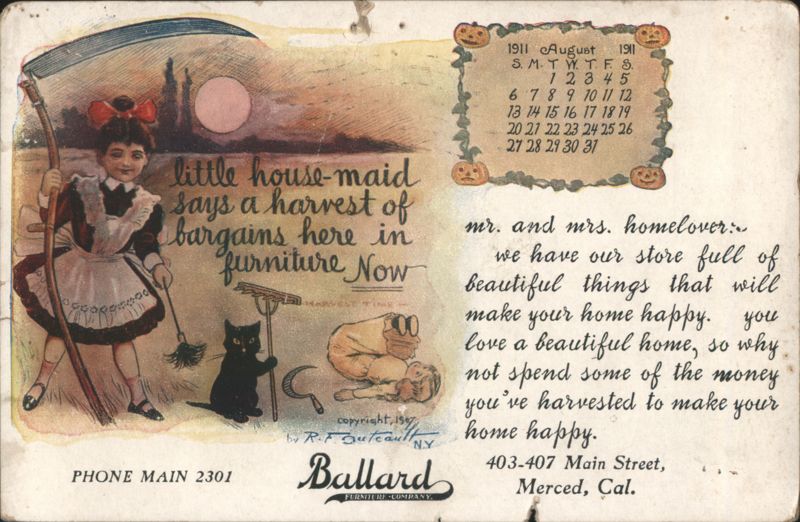 1911 August 1911
S. M. T W. T. F. S.
1 2 3 4 5
6 7 8 9 10 11 12
13 14 15 16 17 18 19
20 21 22 23 24 25 26
27 28 29 30 31
little house-maid
says a harvest of
bargains here in
furniture Now
HARVEST TIME
copyright, 1907
by R. F. Outcault
N.Y.
mr. and mrs. homelover:-
we have our store full of
beautiful things that will
make your home happy. you
love a beautiful home, so why
not spend some of the money
you've harvested to make your
home happy.
403-407 Main Street,
Merced, Cal.
PHONE MAIN 2301
Ballard
FURNITURE COMPANY.